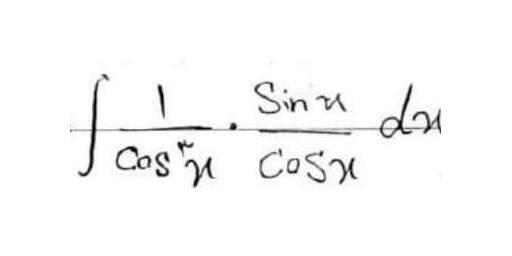 ∫ 1/Cos^۲x . Sin x/Cosx dx